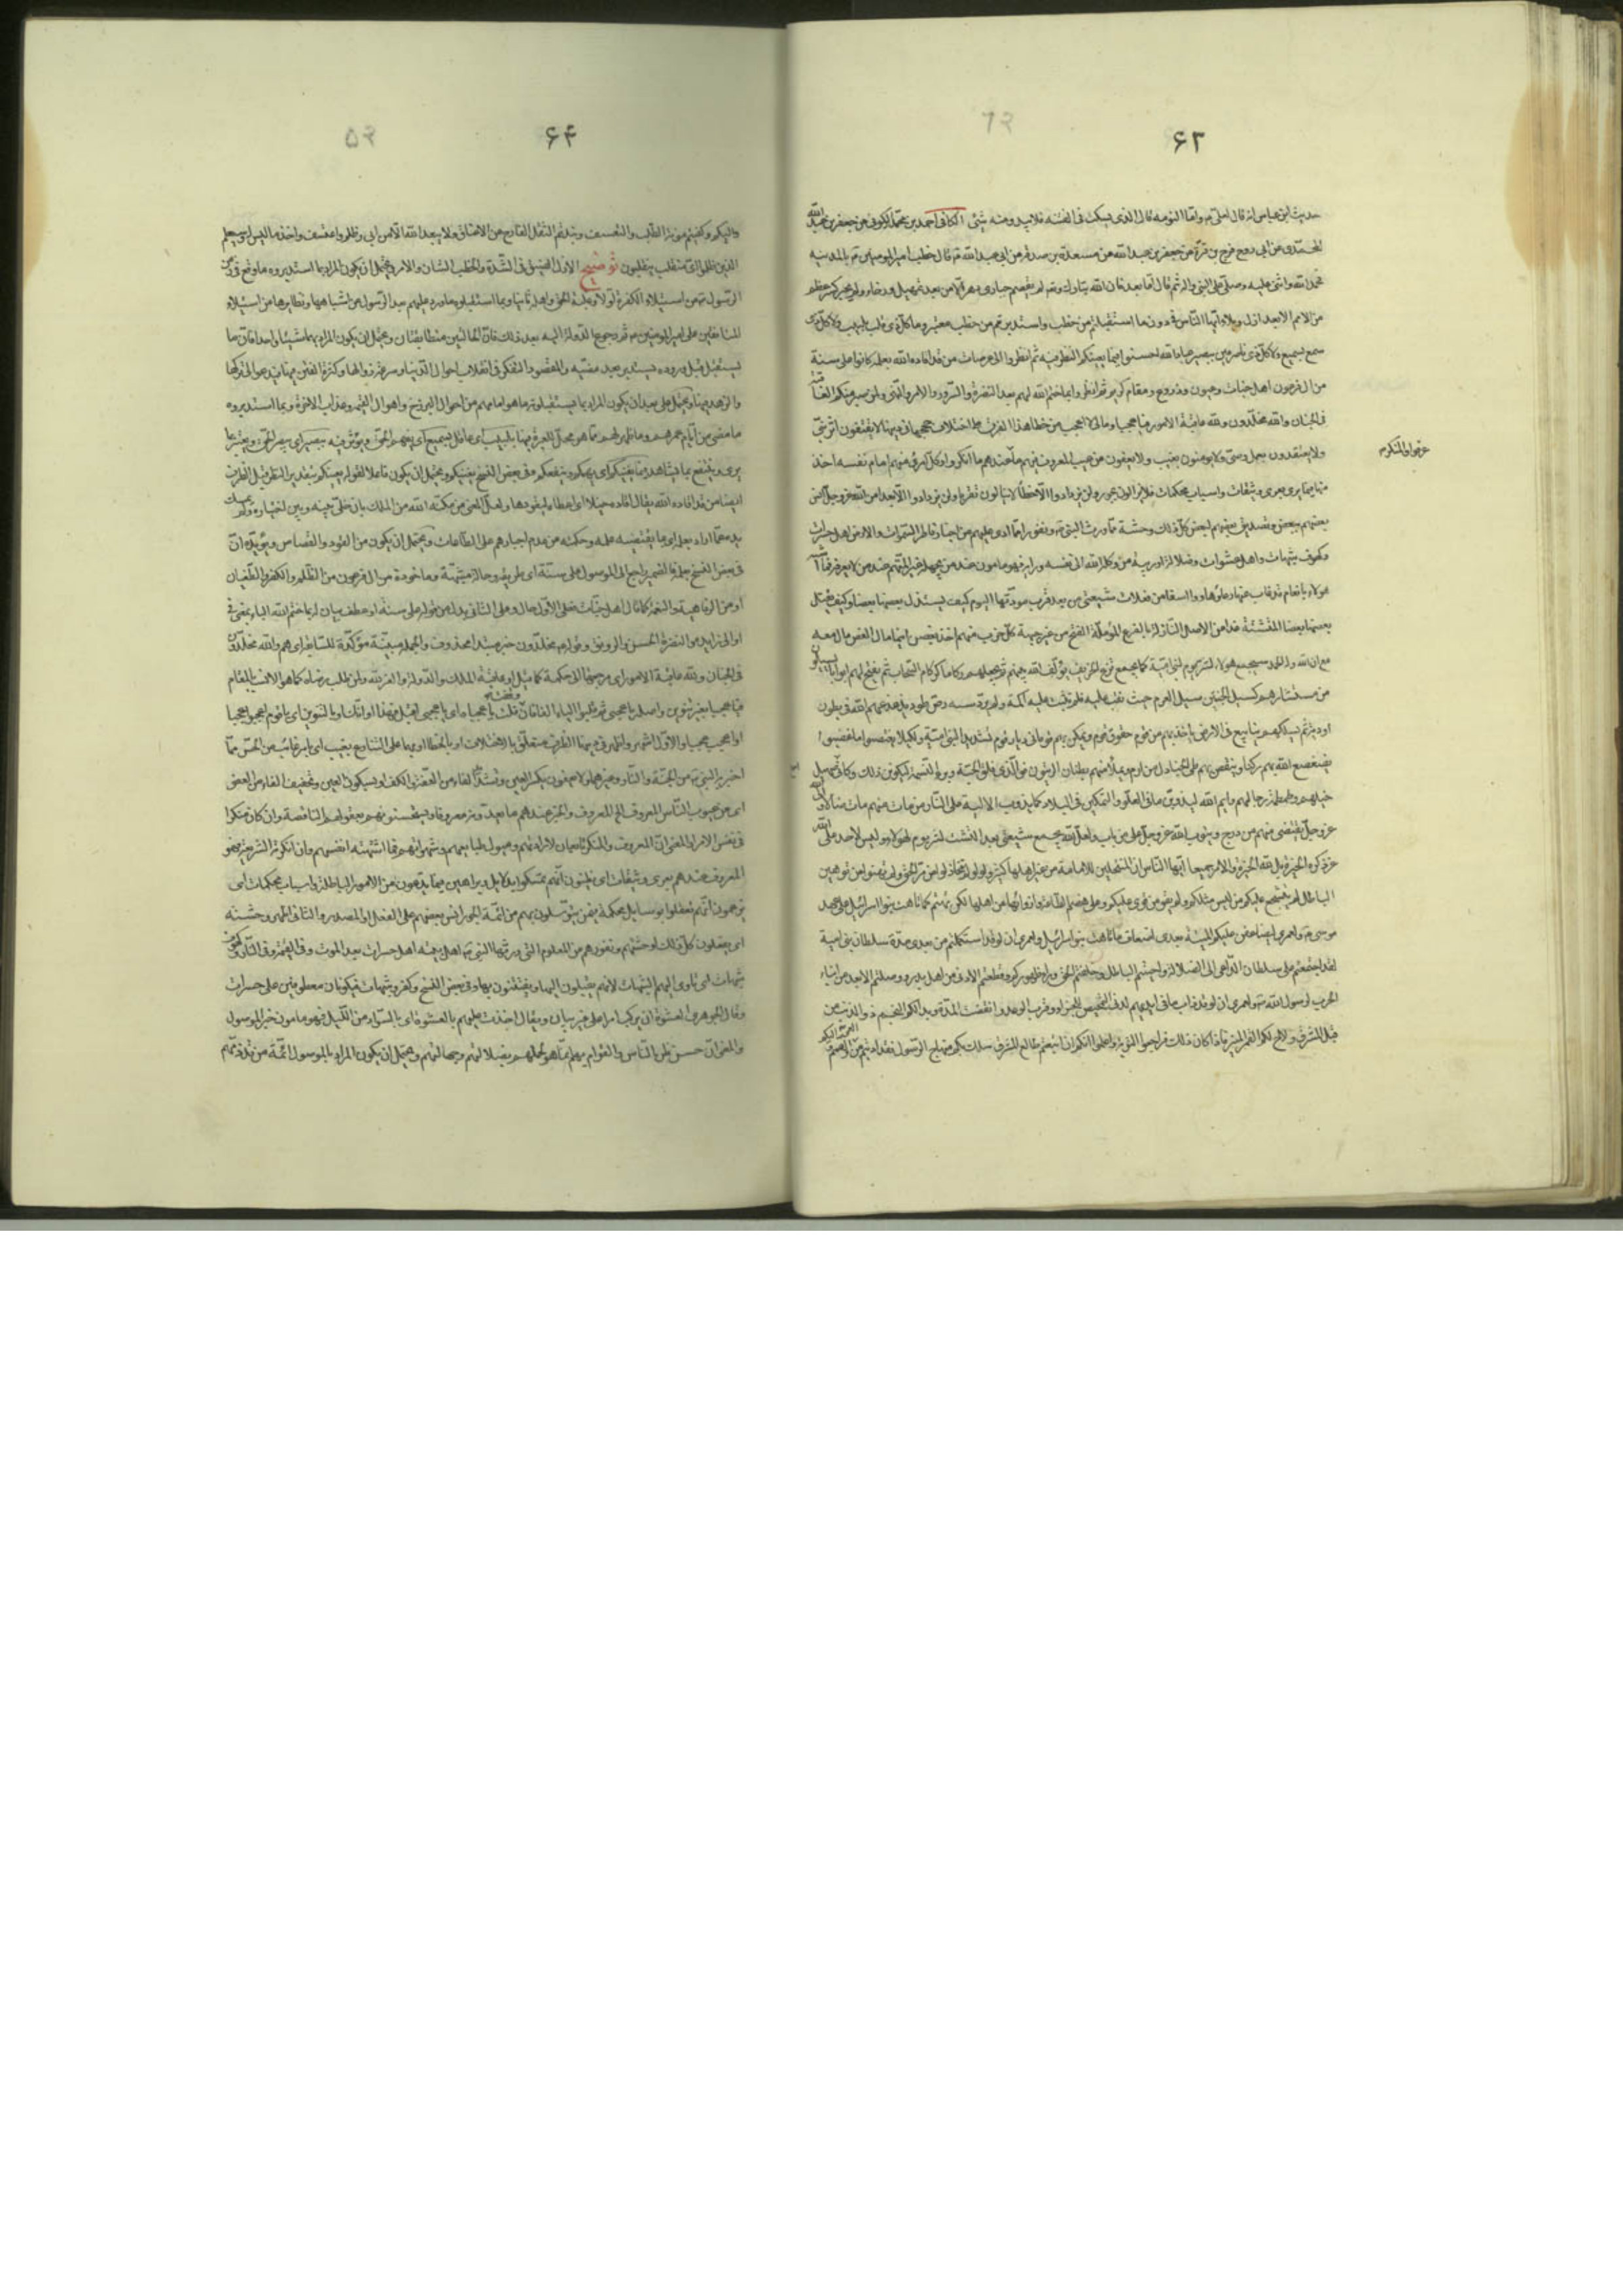 ۶۳
حديث ابن عباس انه قال لعلي ع وما النومة قال الذي يسكت في الفتنة فلا يبدو منه شيء الكافي احمد بن محمد الكوفي عن جعفر بن عبد الله
المحمدي عن ابي روح فرج بن قرة عن جعفر بن عبد الله عن مسعدة بن صدقة عن ابي عبد الله ع قال خطب امير المؤمنين ع بالمدينة
فحمد الله واثنى عليه وصلى على النبي واله ثم قال اما بعد فان الله تبارك وتعالى لم يقصم جباري دهر الا من بعد تمهيل ورخاء ولم يجبر كسر عظم
من الامم الا بعد ازل وبلاء ايها الناس في دون ما استقبلتم من خطب واستدبرتم من خطب معتبر وما كل ذي قلب بلبيب ولا كل ذي
سمع بسميع ولا كل ذي ناظر عين ببصير عباد الله احسنوا فيما يعنيكم النظر فيه ثم انظروا الى عرصات من قد اقاده الله بعلمه كانوا على سنة
من ال فرعون اهل جنات وعيون وزروع ومقام كريم ثم انظروا بما ختم الله لهم بعد النضرة والسرور والامر والنهي ولمن صبر منكم العاقبة
في الجنان والله مخلدون ولله عاقبة الامور فيا عجبا وما لي لا اعجب من خطا هذا الفرق على اختلاف حججها في دينها لا يقتفون اثر نبي
ولا يقتدون بعمل وصي ولا يؤمنون بغيب ولا يعفون عن عيب المعروف فيهم ما عرفوا والمنكر عندهم ما انكروا وكل امرئ منهم امام نفسه اخذ
منها فيما يرى بعرى وثيقات واسباب محكمات فلا يزالون بجور ولن يزدادوا الا خطأ لا ينالون تقربا ولن يزدادوا الا بعدا من الله عز وجل انس
بعضهم ببعض وتصديق بعضهم لبعض كل ذلك وحشة مما ورث النبي ص ونفورا مما ادى اليهم من اخبار فاطر السموات والارض اهل حسرات
وكهوف شبهات واهل عشوات وضلالة وريبة من وكله الله الى نفسه ورايه فهو مامون عند من يجهله غير المتهم عند من لا يعرفه فما اشبه
هؤلاء بانعام قد غاب عنها رعاؤها ووا اسفا من فعلات شيعتي من بعد قرب مودتها اليوم كيف يستذل بعضها بعضا وكيف يقتل
بعضها بعضا المتشتتة غدا عن الاصل النازلة بالفرع المؤملة الفتح من غير جهته كل حزب منهم اخذ بغصن اينما مال الغصن مال معه
مع ان الله وله الحمد سيجمع هؤلاء لشر يوم لبني امية كما يجمع قزع الخريف يؤلف الله بينهم ثم يجعلهم ركاما كركام السحاب ثم يفتح لهم ابوابا يسيلون
من مستثارهم كسيل الجنتين سيل العرم حيث نقب عليه فارة فلم يثبت عليه اكمة ولم يرد سننه رص طود يذعذعهم الله في بطون
اودية ثم يسلكهم ينابيع في الارض ياخذ بهم من قوم حقوق قوم ويمكن بهم قوما في ديار قوم تشريدا لبني امية ولكيلا يغتصبوا ما غصبوا
يضعضع الله بهم ركنا وينقض بهم طي الجنادل من ارم ويملأ منهم بطنان الزيتون فوالذي فلق الحبة وبرا النسمة ليكونن ذلك وكاني اسمع صهيل
خيلهم وطمطمة رجالهم وايم الله ليذوبن ما في ايديهم بعد العلو والتمكين في البلاد كما تذوب الالية على النار من مات منهم مات ضالا والى الله
عز وجل يفضي منهم من درج ويتوب الله عز وجل على من تاب ولعل الله يجمع شيعتي بعد التشتت لشر يوم لهؤلاء وليس لاحد على الله
عز ذكره الخيرة بل لله الخيرة والامر جميعا ايها الناس ان المنتحلين للامامة من غير اهلها كثير ولو لم تتخاذلوا عن مر الحق ولم تهنوا عن توهين
الباطل لم يتشجع عليكم من ليس مثلكم ولم يقو من قوي عليكم وعلى هضم الطاعة وازوائها عن اهلها لكن تهتم كما تاهت بنو اسرائيل على عهد
موسى ع ولعمري ليضاعفن عليكم التيه من بعدي اضعاف ما تاهت بنو اسرائيل ولعمري ان لو قد استكملتم من بعدي مدة سلطان بني امية
لقد اجتمعتم على سلطان الداعي الى الضلالة واحييتم الباطل وخلفتم الحق وراء ظهوركم وقطعتم الادنى من اهل بدر ووصلتم الابعد من ابناء
الحرب لرسول الله ص ولعمري ان لو قد ذاب ما في ايديهم لدنا التمحيص للجزاء وقرب الوعد وانقضت المدة وبدا لكم النجم ذو الذنب من
قبل المشرق ولاح لكم القمر المنير فاذا كان ذلك فراجعوا التوبة واعلموا انكم ان اتبعتم طالع المشرق سلك بكم مناهج الرسول فتداويتم من العمى والصمم
عرفوا والمنكر
۶۴
والبكم وكفيتم مؤنة الطلب والتعسف ونبذتم الثقل الفادح عن الاعناق ولا يبعد الله الا من ابى وظلم واعتسف واخذ ما ليس له وسيعلم
الذين ظلموا اي منقلب ينقلبون توضيح الازل الضيق في الشدة والخطب الشان والامر ويحتمل ان يكون المراد بما استدبروه ما وقع في زمن
الرسول ص من استيلاء الكفرة اولا وغلبة الحق واهله ثانيا وبما استقبلوه ما ورد عليهم بعد الرسول من اشباهها ونظايرها من استيلاء
المنافقين على امير المؤمنين ع ثم رجوع الدولة اليه بعد ذلك فان الحالتين متطابقتان ويحتمل ان يكون المراد بهما شيئا واحدا فان ما
يستقبل قبل وروده يستدبر بعد مضيه والمقصود التفكر في انقلاب احوال الدنيا وسرعة زوالها وكثرة الفتن فيها فتدعو الى تركها
والزهد فيها ويحتمل على بعد ان يكون المراد بما يستقبلونه ما هو امامهم من احوال البرزخ واهوال القيمة وعذاب الاخرة وبما استدبروه
ما مضى من ايام عمرهم وما ظهر لهم مما هو محل للعبرة فيها بلبيب اي عاقل بسميع اي يفهم الحق ويؤثر فيه ببصير اي يبصر الحق ويعتبر بما
يرى وينتفع بما يشاهد فيما يعنيكم اي يهمكم وينفعكم وفي بعض النسخ يغنيكم ويحتمل ان يكون فاعلا لقوله يعينكم بتقدير النظر قبل الظرف
ايضا من قد اقاده الله يقال اقاده خيلا اي اعطاه ليقودها ولعل المعنى من مكنه الله من الملك بان خلى بينه وبين اختياره ولم يمسك
يده عما اراد بعلمه اي بما يقتضيه علمه وحكمته من عدم اجبارهم على الطاعات ويحتمل ان يكون من القود والقصاص ويؤيده ان
في بعض النسخ بعمله فالضمير راجع الى الموصول على سنة اي طريقة وحالة مشبهة وماخوذة من ال فرعون من الظلم والكفر والطغيان
او من الرفاهية والنعمة كما قال اهل جنات فعلى الاول حال وعلى الثاني بدل من قوله على سنة او عطف بيان له بما ختم الله الباء بمعنى في
او الى زايدة من النضرة الحسن والرونق وقوله مخلدون خبر مبتدا محذوف والجملة مبينة ومؤكدة للسابقة اي هم والله مخلدون
في الجنان ولله عاقبة الامور اي مرجعها الى حكمه كما قيل او عاقبة الملك والدولة والعز لله ولمن طلب رضاه كما هو الانسب بالمقام
فيا عجبا بغير تنوين واصله يا عجبي ثم قلبوا الياء الفا فان وقفت قلت يا عجباه اي يا عجبي اقبل هذا اوانك او بالتنوين اي يا قوم اعجبوا عجبا
او اعجب عجبا والاول اشهر واظهر في دينها الظرف متعلق بالاختلاف او بالخطا او بهما على التنازع بغيب اي بامر غائب عن الحس مما
اخبر به النبي ص من الجنة والنار وغيرهما ولا يعفون بكسر العين وتشديد الفاء من العفة والكف او بسكون العين وتخفيف الفاء من العفو
اي عن عيوب الناس المعروف الخ المعروف والخير عندهم ما يعدونه معروفا ويستحسنونه بعقولهم الناقصة وان كان منكرا
في نفس الامر او المعنى ان المعروف والمنكر تابعان لارادتهم وميول طبايعهم وشهواتهم فما اشتهته انفسهم وان انكرته الشريعة فهو
المعروف عندهم بعرى وثيقات اي يظنون انهم تمسكوا بدلايل وبراهين فيما يدعون من الامور الباطلة واسباب محكمات اي
يزعمون انهم تعلقوا بوسايل محكمة فيمن يتوسلون بهم من ائمة الجور انس بعضهم على الفعل او المصدر والثاني اظهر وحشة
اي يفعلون كل ذلك لوحشتهم ونفورهم من العلوم التي ورثها النبي ص اهل بيته اهل حسرات بعد الموت وفي القيمة وفي النار وكهوف
شبهات اي تاوي اليهم الشبهات لانهم يقبلون اليها ويفتتنون بها وفي بعض النسخ وكفر وشبهات فيكونان معطوفين على حسرات
وقال الجوهري العشوة ان يركب امرا على غير بيان ويقال اخذت عليهم بالعشوة اي بالسواد من الليل فهو مامون خبر الموصول
والمعنى ان حسن ظن الناس والعوام بهم انما هو لجهلهم بضلالتهم وجهالتهم ويحتمل ان يكون المراد بالموصول ائمة من قد ذمهم